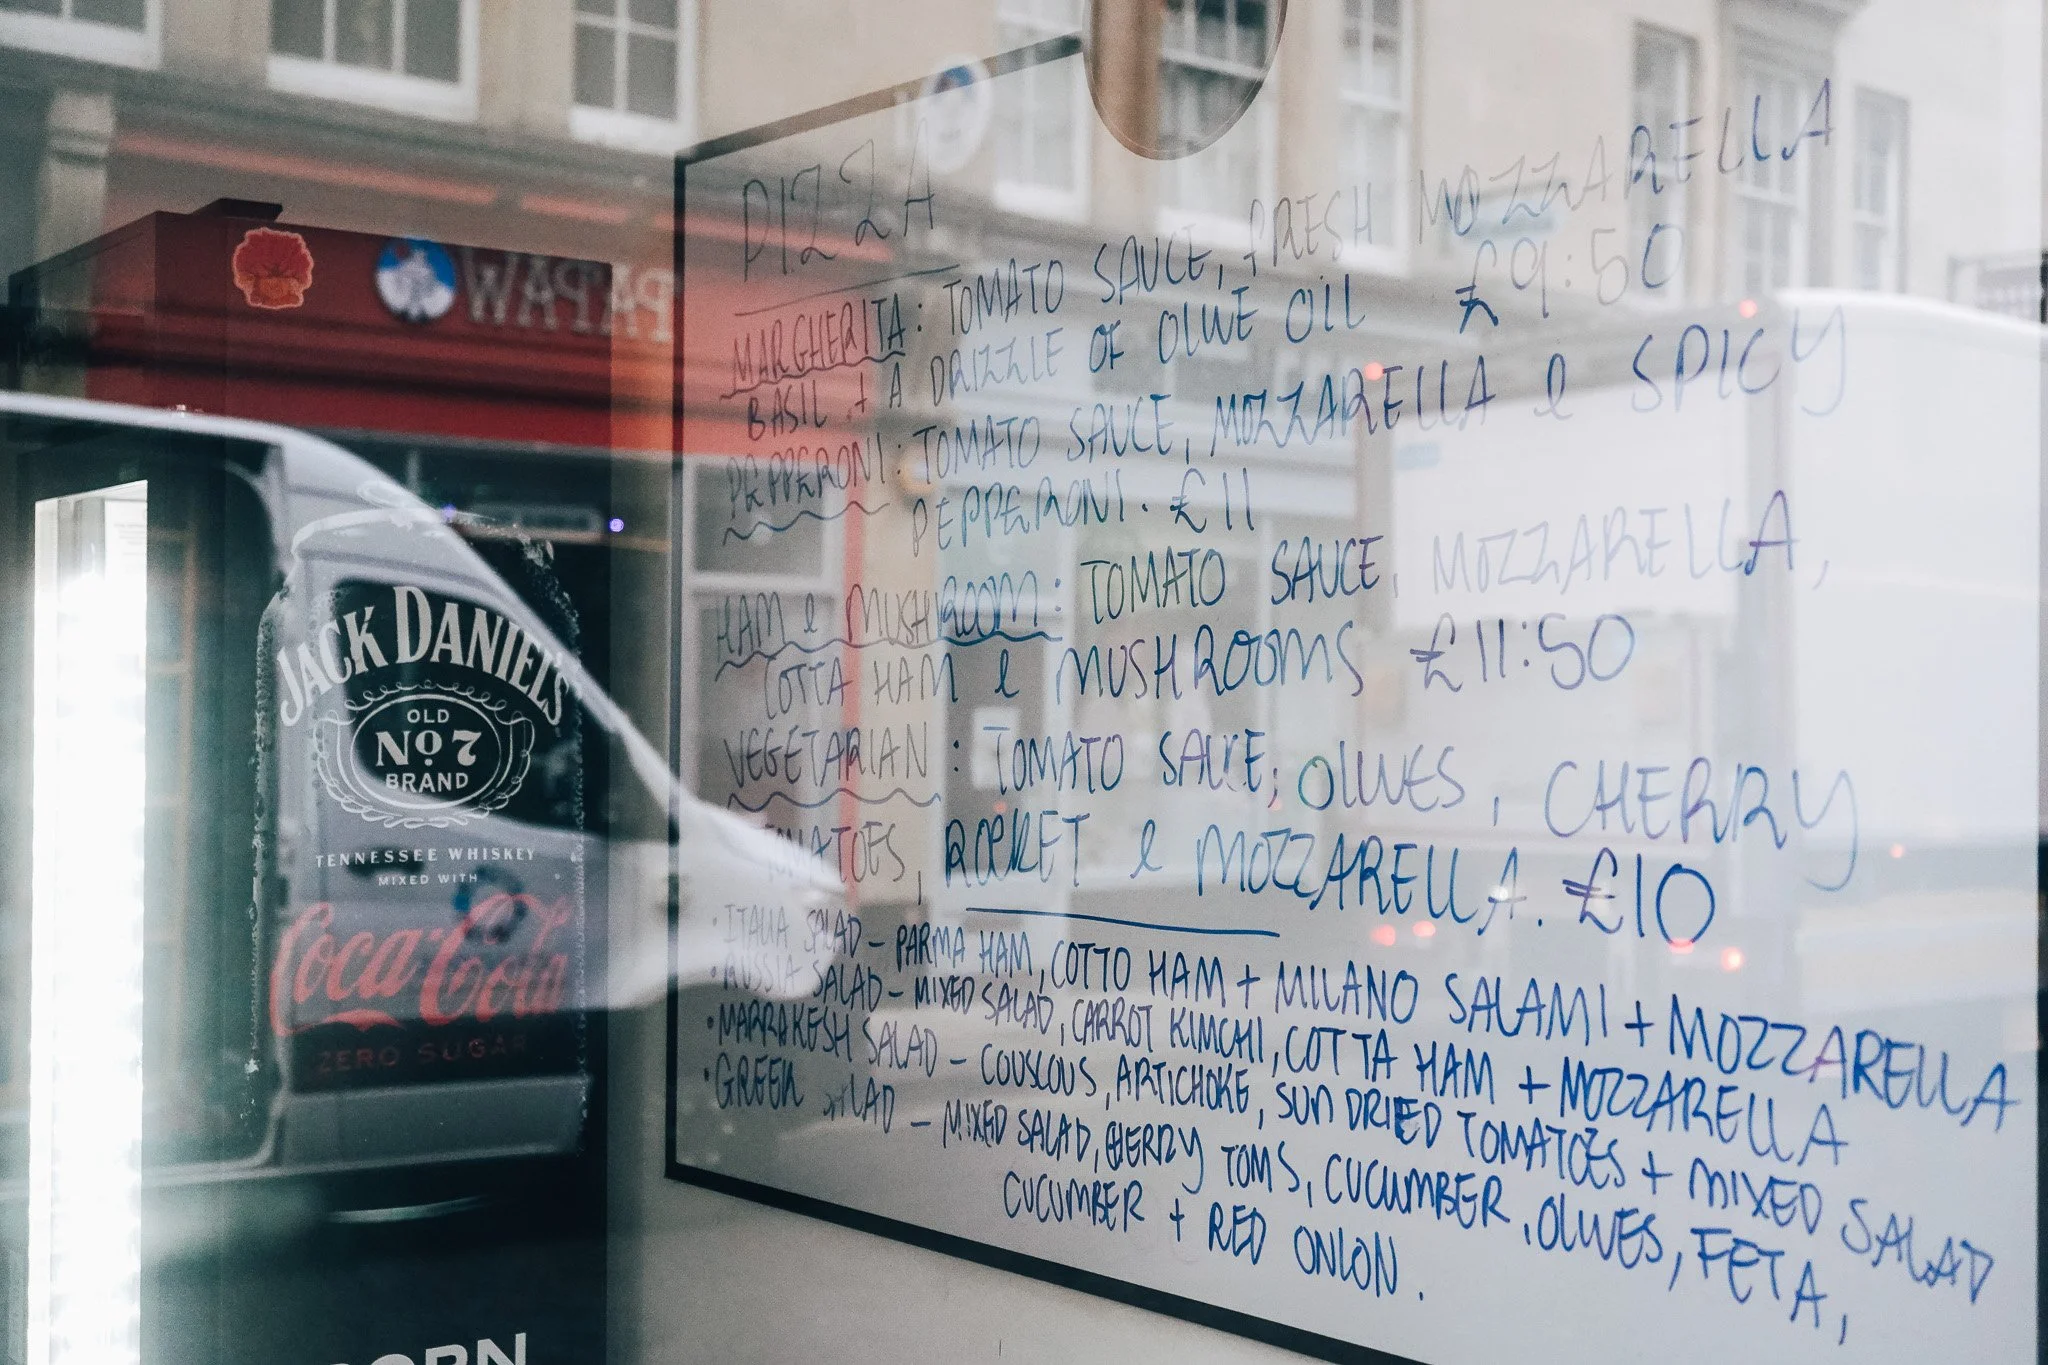 PAPAW
JACK DANIEL'S
OLD
Nº7
BRAND
TENNESSEE WHISKEY
MIXED WITH
Coca-Cola
ZERO SUGAR
ORN
PIZZA
MARGHERITA: TOMATO SAUCE, FRESH MOZZARELLA
BASIL + A DRIZZLE OF OLIVE OIL £9:50
PEPPERONI: TOMATO SAUCE, MOZZARELLA e SPICY
PEPPERONI. £11
HAM e MUSHROOM: TOMATO SAUCE, MOZZARELLA,
COTTA HAM e MUSHROOMS £11:50
VEGETARIAN: TOMATO SAUCE, OLIVES, CHERRY
TOMATOES, ROCKET e MOZZARELLA. £10
• ITALIA SALAD - PARMA HAM, COTTO HAM + MILANO SALAMI + MOZZARELLA
• RUSSIA SALAD - MIXED SALAD, CARROT KIMCHI, COTTA HAM + MOZZARELLA
• MARRAKESH SALAD - COUSCOUS, ARTICHOKE, SUN DRIED TOMATOES + MIXED SALAD
• GREEK SALAD - MIXED SALAD, CHERRY TOMS, CUCUMBER, OLIVES, FETA,
CUCUMBER + RED ONION.